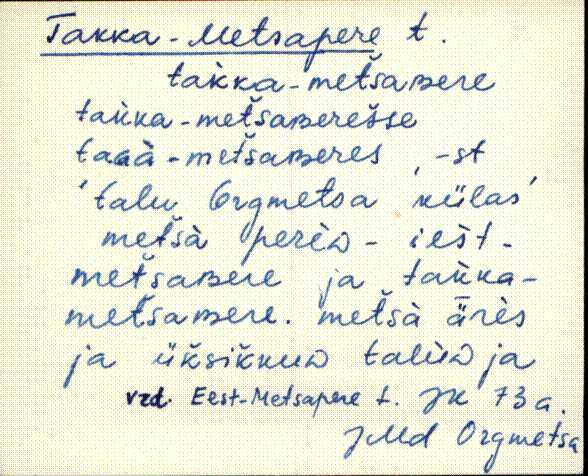 Takka-Metsapere t.
takka-metšaʙere
takka-metšaʙeresse
taɢà-metšaʙeres, -st
'talu Orgmetsa külas'
metšà perèᴅ - iest-
metšaʙere ja takka-
metšaʙere. metšà ärès
ja üksikkuᴅ talùᴅ ja
vrd. Eest-Metsapere t. JK 73a.
JMd Orgmetsa